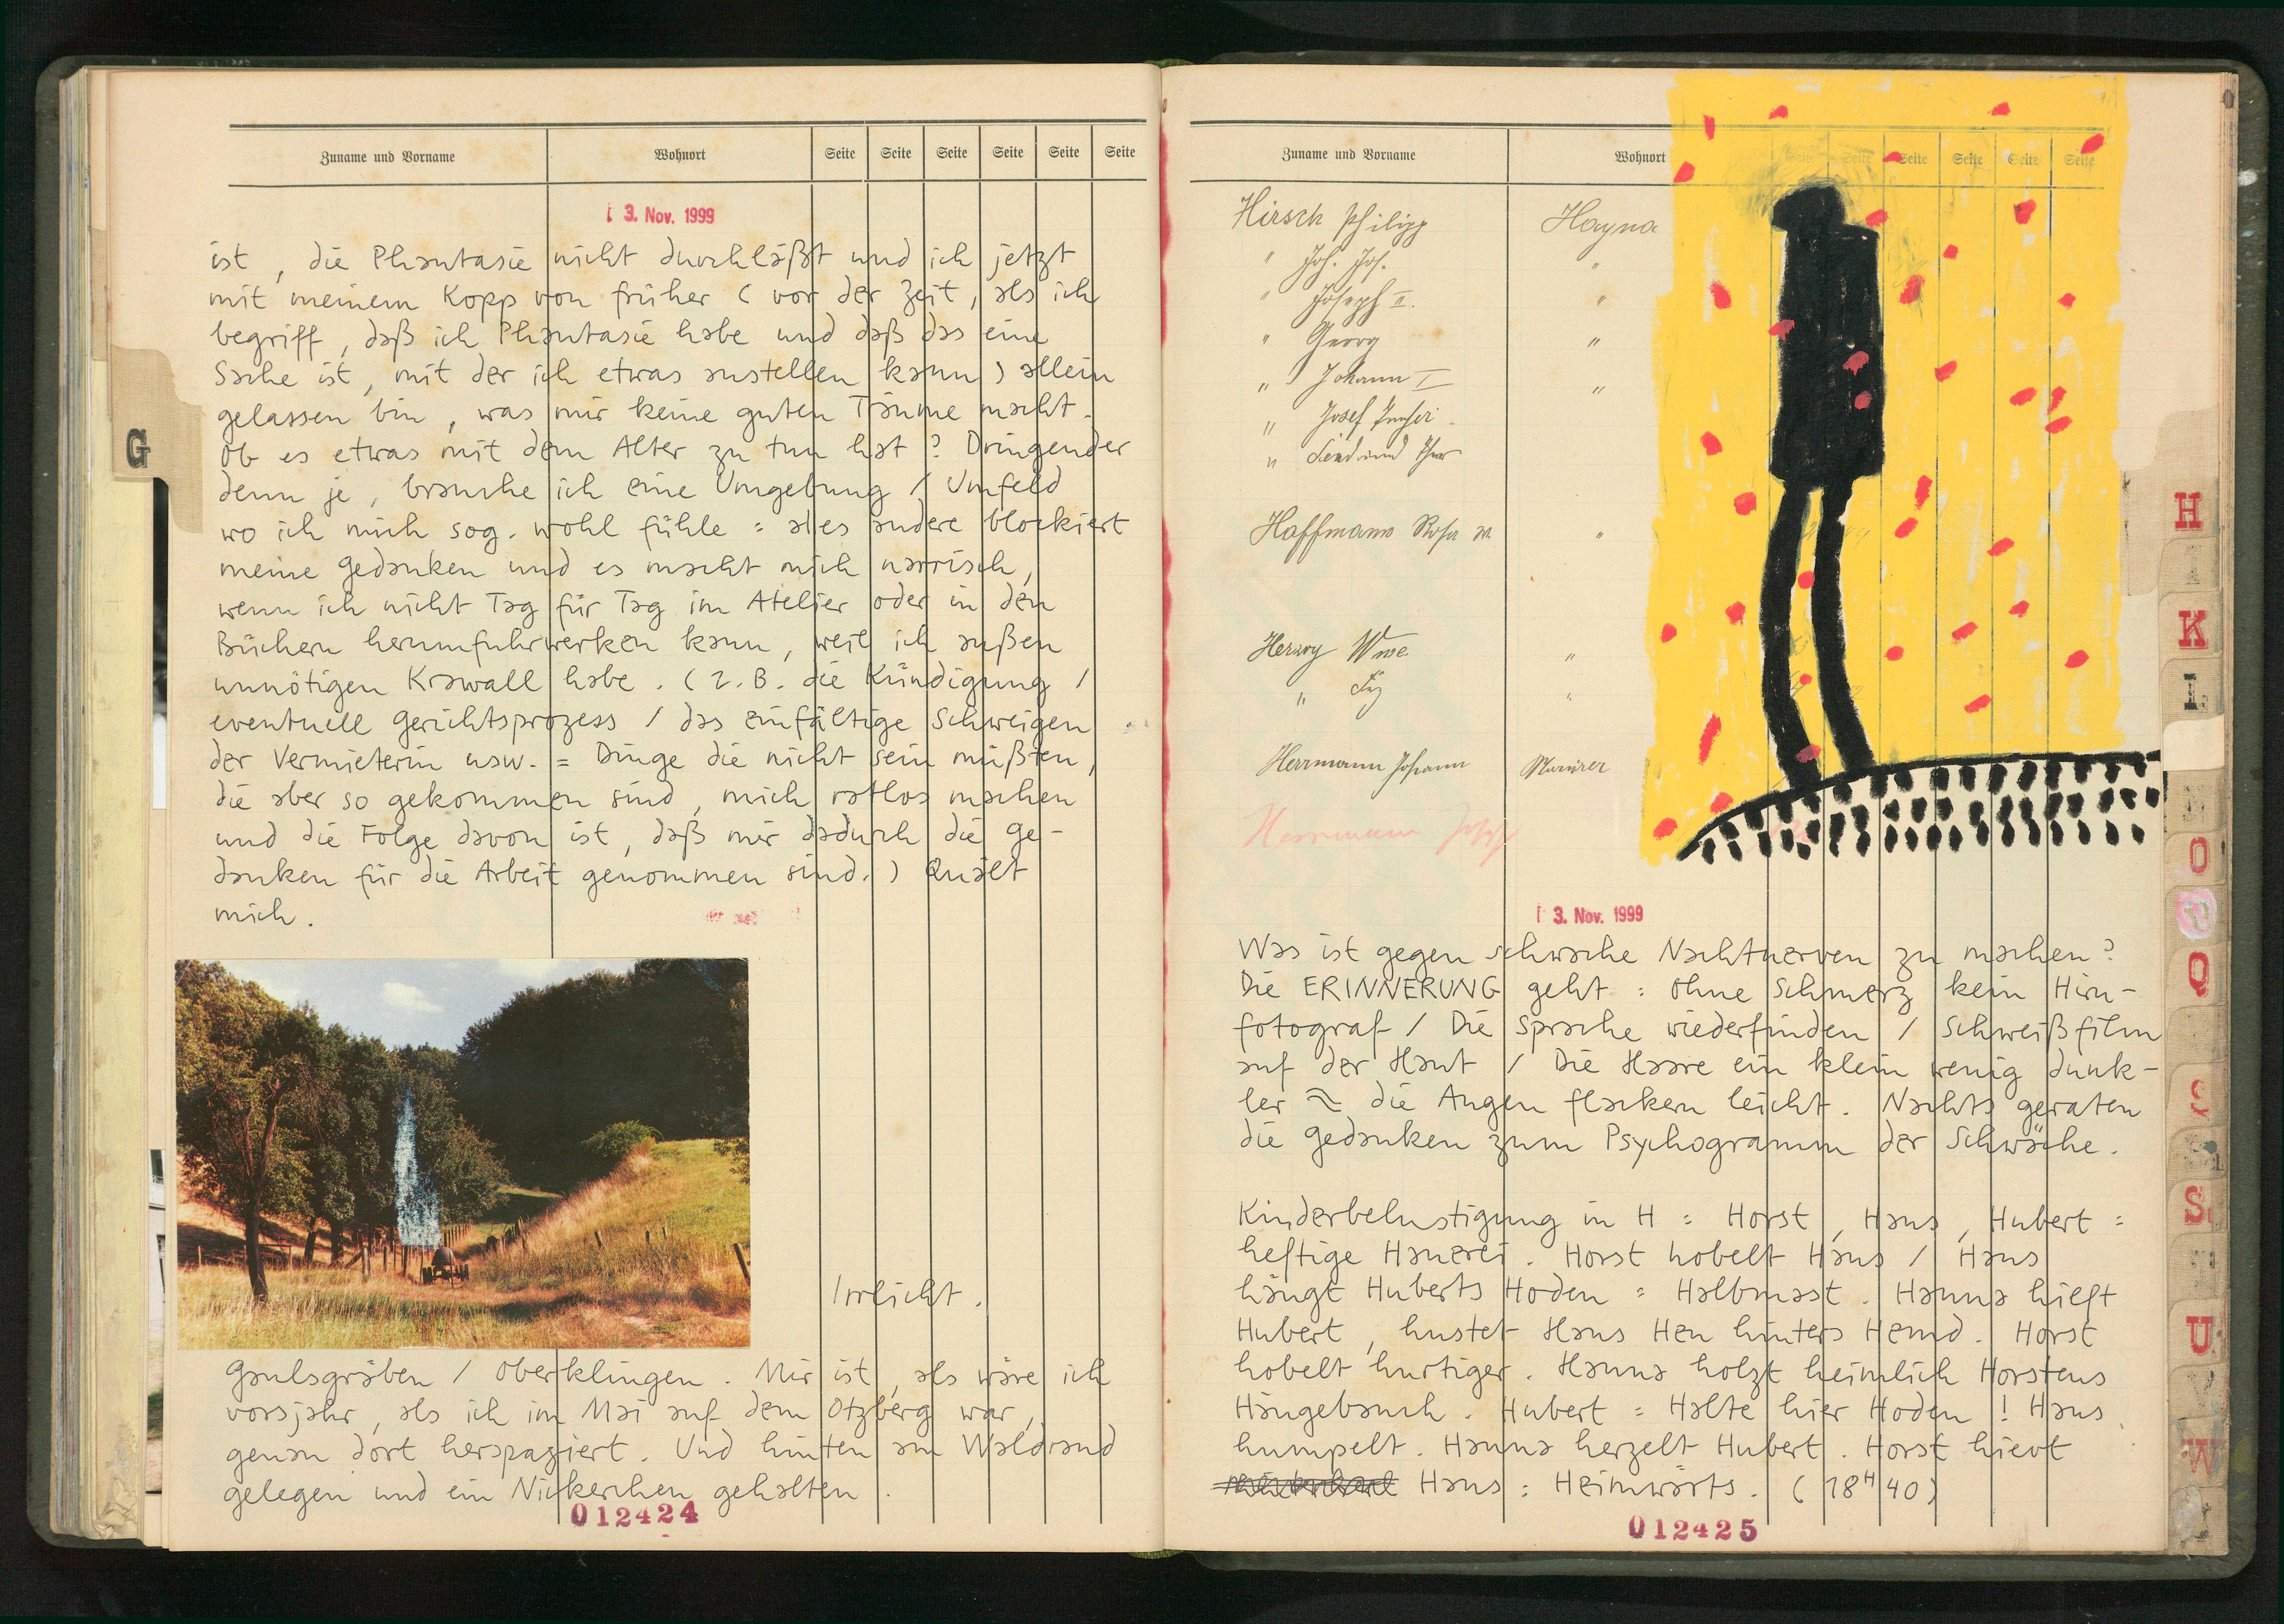 Zuname und Vorname Wohnort Seite Seite Seite Seite Seite Seite
3. Nov. 1999
ist, die Phantasie nicht durchläßt und ich jetzt
mit meinem Kopp von früher (vor der Zeit, als ich
begriff, daß ich Phantasie habe und daß das eine
Sache ist, mit der ich etwas anstellen kann) allein
gelassen bin, was mir keine guten Träume macht.
Ob es etwas mit dem Alter zu tun hat? Dringender
denn je, brauche ich eine Umgebung / Umfeld
wo ich mich sog. wohl fühle = alles andere blockiert
meine Gedanken und es macht mich narrisch,
wenn ich nicht Tag für Tag im Atelier oder in den
Büchern herumfuhrwerken kann, weil ich außen
unnötigen Krawall habe. (z.B. die Kündigung /
eventuell Gerichtsprozess / das einfältige Schweigen
der Vermieterin usw. = Dinge die nicht sein müßten,
die aber so gekommen sind, mich ratlos machen
und die Folge davon ist, daß mir dadurch die Ge-
danken für die Arbeit genommen sind.) Quält
mich.
Irrlicht.
Gaulsgraben / Oberklingen. Mir ist, als wäre ich
vorsjahr, als ich im Mai auf dem Otzberg war,
genau dort herspaziert. Und hinten am Waldrand
gelegen und ein Nickerchen gehalten.
012424
G
Zuname und Vorname Wohnort Seite Seite Seite Seite Seite Seite
Hirsch Philipp Hayna
" Joh. Jos. "
" Joseph II. "
" Georg "
" Johann I "
" Josef
"
Hoffmann Rosa "
Herzog Wwe. "
" "
Herrmann Johann Maurer
Herrmann Josef
3. Nov. 1999
Was ist gegen schwache Nachtnerven zu machen?
Die ERINNERUNG geht : Ohne Schmerz kein Hirn-
fotograf / Die Sprache wiederfinden / Schweißfilm
auf der Haut / Die Haare ein klein wenig dunk-
ler ≈ die Augen flackern leicht. Nachts geraten
die Gedanken zum Psychogramm der Schwäche.
Kinderbelustigung in H = Horst, Hans, Hubert =
heftige Hauerei. Horst hobelt Hans / Hans
hängt Huberts Hoden = Halbmast. Hanna hieft
Hubert, hustet Hans Heu hinters Hemd. Horst
hobelt hurtiger. Hanna holzt heimlich Horstens
Hängebauch. Hubert = Halte hier Hoden! Hans
humpelt. Hanna herzelt Hubert. Horst hievt
Hans : Heimwärts. (18H40)
012425
H
I
K
L
O
P
Q
S
U
V
W